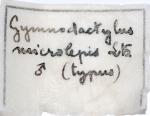 Gymnodactylus
microlepis Ltz.
♂ (typus)